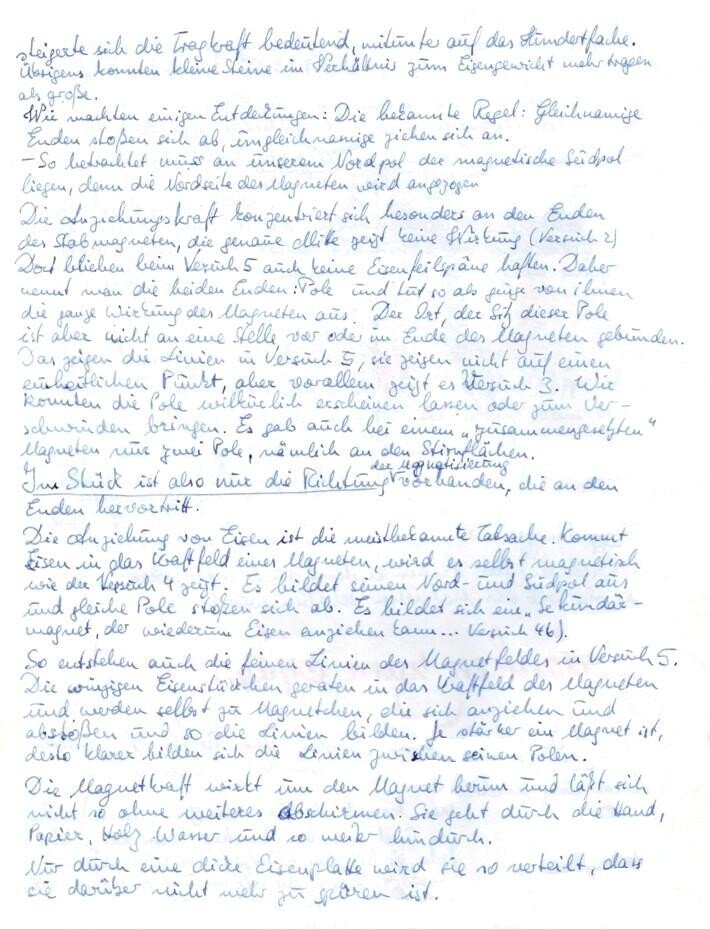 steigerte sich die Tragkraft bedeutend, mitunter auf das Hundertfache.
Übrigens konnten kleine Steine im Verhältnis zum Eisengewicht mehr tragen
als große.
Wir machten einigen Entdeckungen: Die bekannte Regel: Gleichnamige
Enden stoßen sich ab, ungleichnamige ziehen sich an.
– So betrachtet muss an unserem Nordpol der magnetische Südpol
liegen, denn die Nordseite des Magneten wird angezogen
Die Anziehungskraft konzentriert sich besonders an den Enden
des Stabmagneten, die genaue Mitte zeigt keine Wirkung (Versuch 2)
Dort blieben beim Versuch 5 auch keine Eisenfeilspäne haften. Daher
nennt man die beiden Enden: Pole und tut so als ginge von ihnen
die ganze Wirkung des Magneten aus. Der Ort, der Sitz dieser Pole
ist aber nicht an eine Stelle vor oder im Ende des Magneten gebunden.
Das zeigen die Linien in Versuch 5, sie zeigen nicht auf einen
einheitlichen Punkt, aber vorallem zeigt es Versuch 3. Wir
konnten die Pole willkürlich erscheinen lassen oder zum Ver-
schwinden bringen. Es gab auch bei einem „zusammengesetzten"
Magneten nur zwei Pole, nämlich an den Stirnflächen.
der Magnetisierung
Im Stück ist also nur die Richtung vorhanden, die an den
Enden hervortritt.
Die Anziehung von Eisen ist die meistbekannte Tatsache. Kommt
Eisen in das Kraftfeld eines Magneten, wird es selbst magnetisch
wie der Versuch 4 zeigt. Es bildet seinen Nord- und Südpol aus
und gleiche Pole stoßen sich ab. Es bildet sich ein „Sekundär-
magnet, der wiederum Eisen anziehen kann... Versuch 4b).
So entstehen auch die feinen Linien des Magnetfeldes in Versuch 5.
Die winzigen Eisenstückchen geraten in das Kraftfeld des Magneten
und werden selbst zu Magnetchen, die sich anziehen und
abstoßen und so die Linien bilden. Je stärker ein Magnet ist,
desto klarer bilden sich die Linien zwischen seinen Polen.
Die Magnetkraft wirkt um den Magnet herum und läßt sich
nicht so ohne weiteres abschirmen. Sie geht durch die Hand,
Papier, Holz Wasser und so weiter hindurch.
Nur durch eine dicke Eisenplatte wird sie so verteilt, dass
sie darüber nicht mehr zu spüren ist.